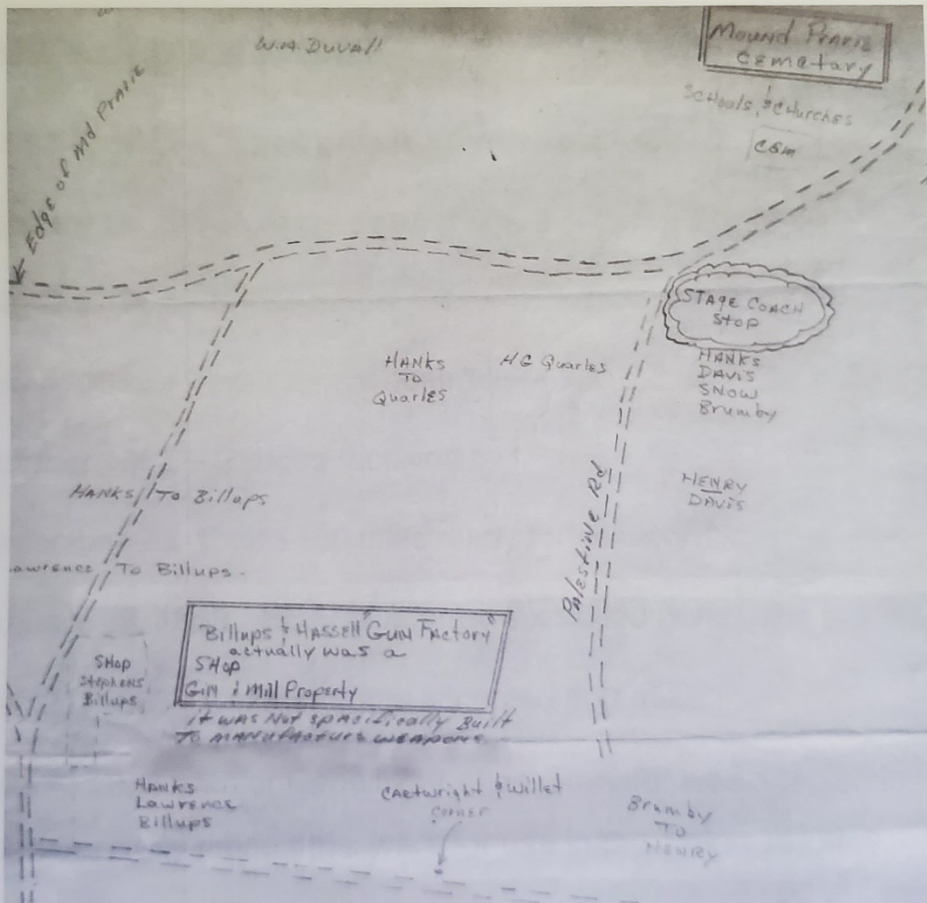 W.A. Duvall
Mound Prarie
Cemetary
Schools, & Churches
Cem
Edge of Md Prarie
Stage Coach
Stop
Hanks
To
Quarles
HG Quarles
Hanks
Davis
Snow
Brumby
Henry
Davis
Palestine Rd
Hanks To Billups
awrence To Billups.
Billups & Hassell "Gun Factory"
actually was a
Shop
Gin & Mill Property
it was not spacifically Built
To manufacture weapons
Shop
Stephens
Billups
Hanks
Lawrence
Billups
Cartwright & Willet
Corner
Brumby
To
Henry